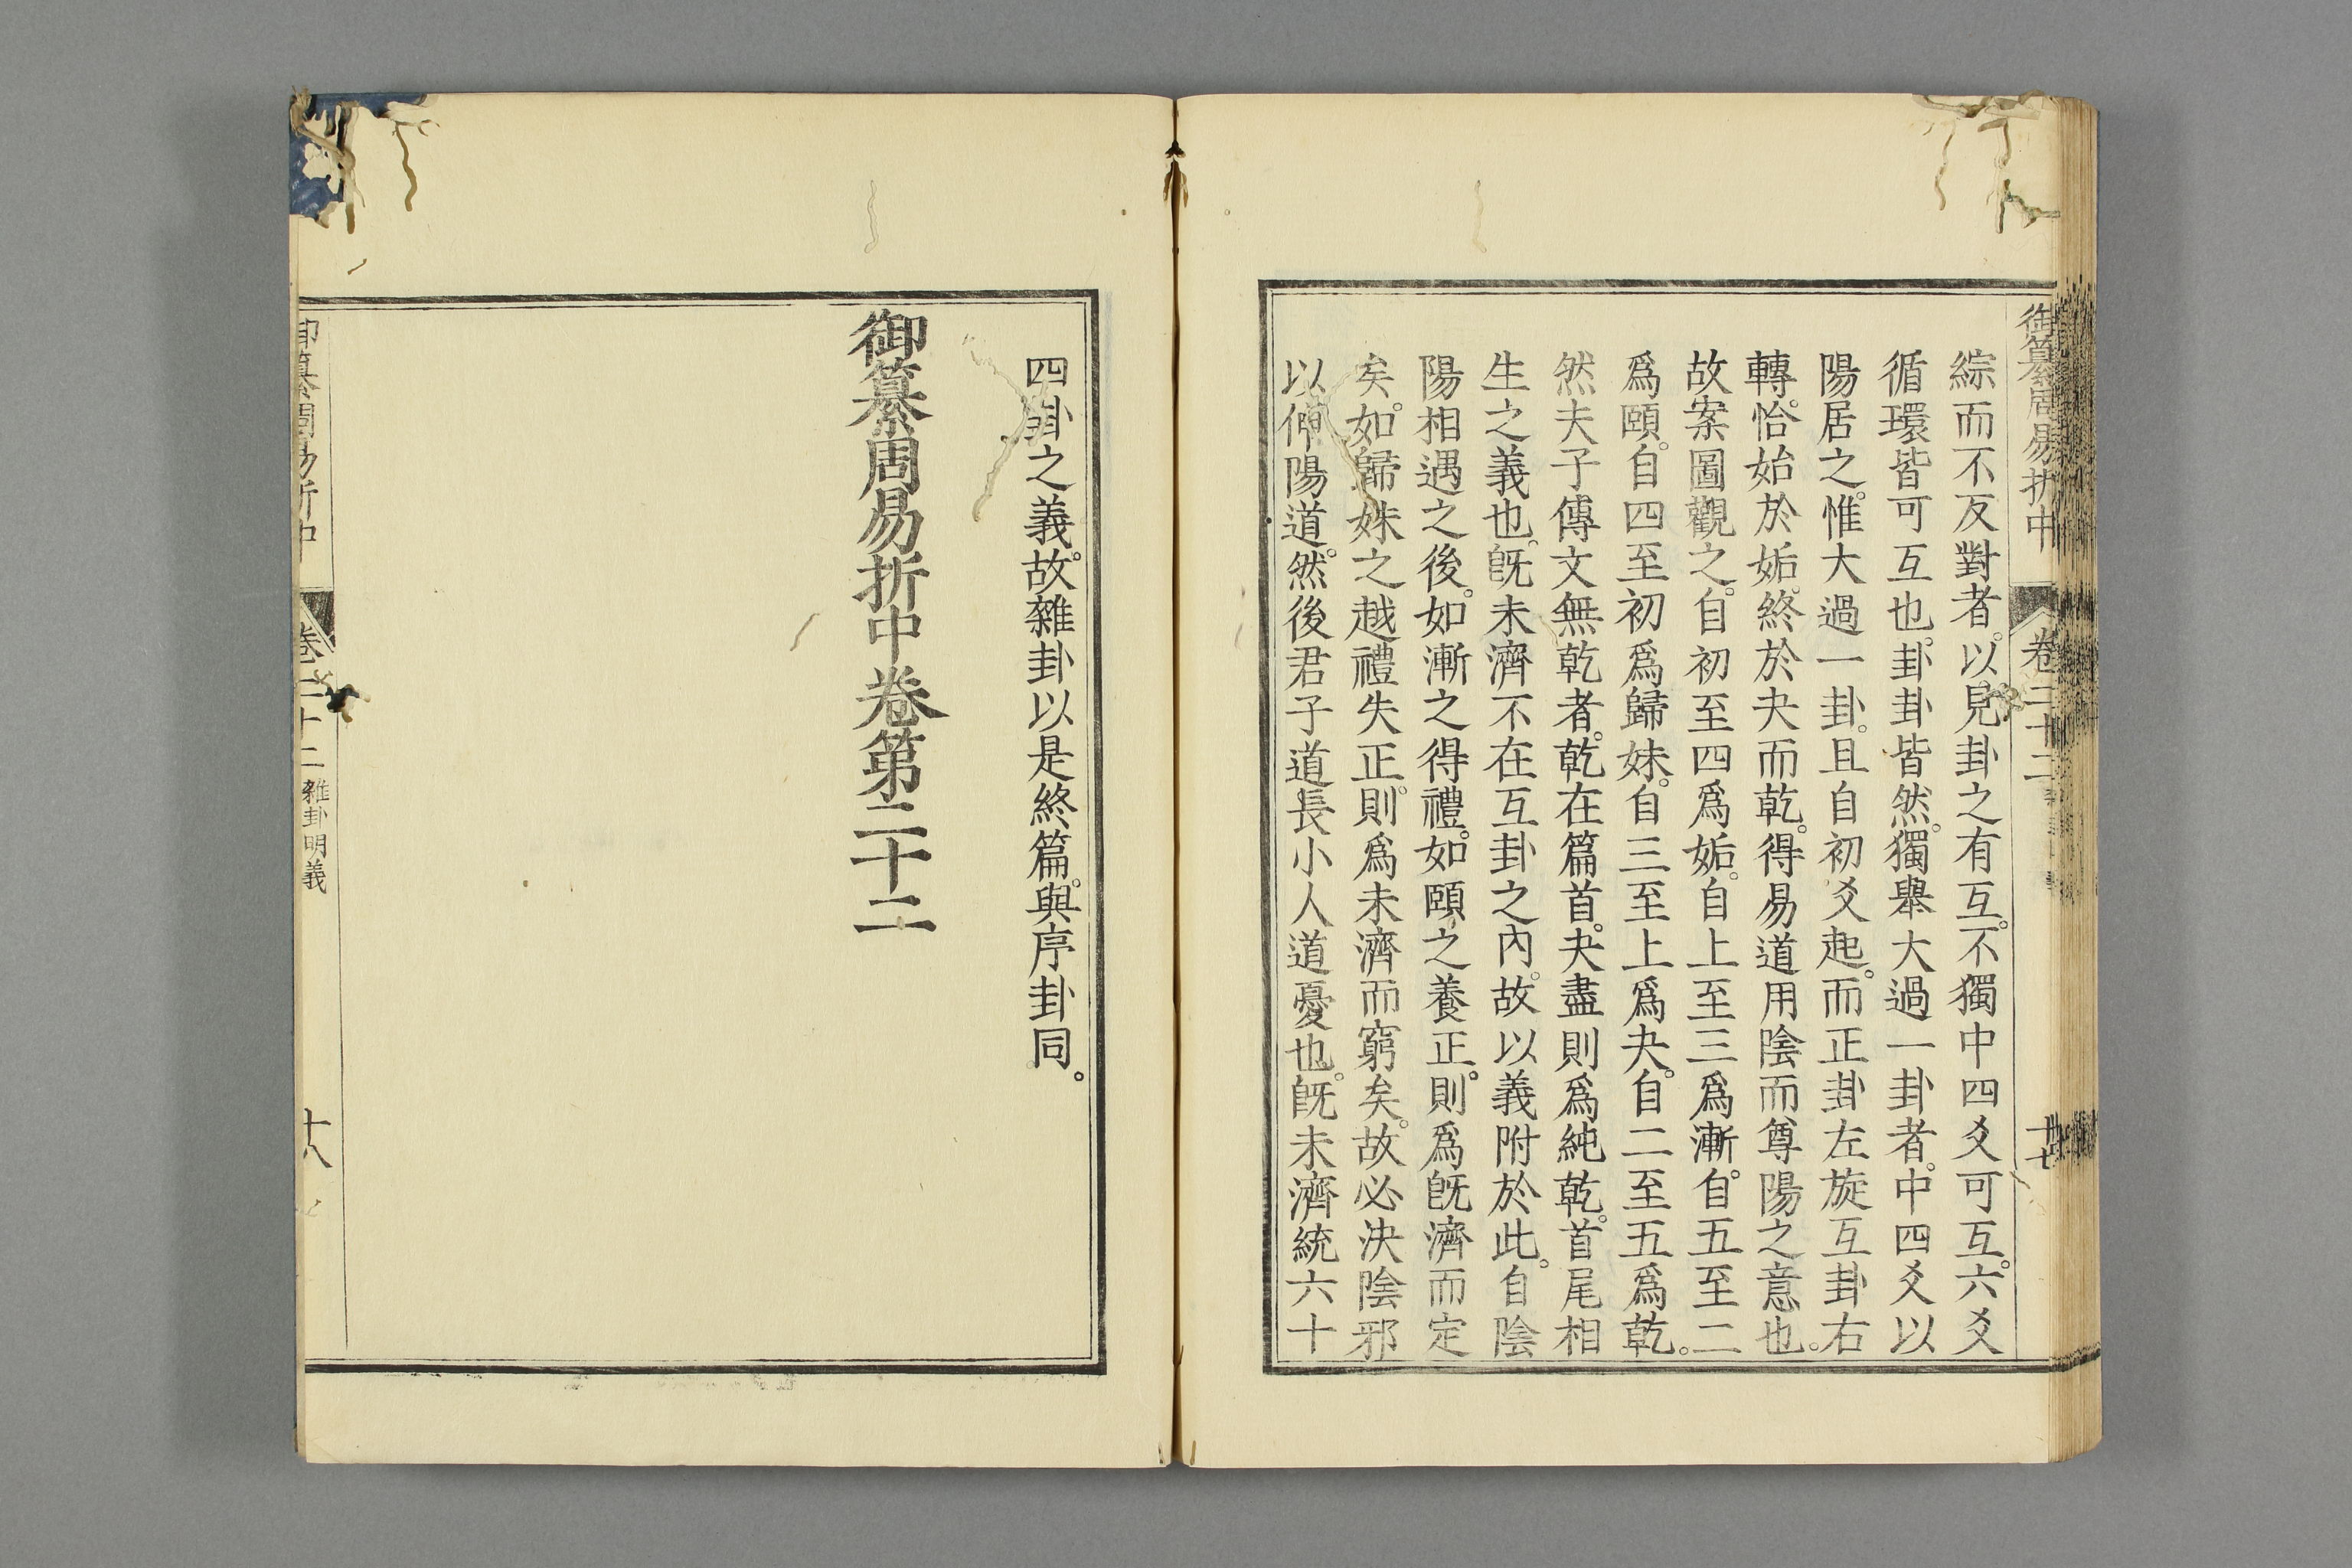 御纂周易折中 卷二十二 十七
綜而不反對者。以見卦之有互。不獨中四爻可互。六爻
循環皆可互也。卦卦皆然。獨舉大過一卦者。中四爻以
陽居之。惟大過一卦。且自初爻起。而正卦左旋互卦右
轉。恰始於姤。終於夬而乾。得易道用陰而尊陽之意也。
故案圖觀之。自初至四爲姤。自上至三爲漸。自五至二
爲頤。自四至初爲歸妹。自三至上爲夬。自二至五爲乾。
然夫子傳文無乾者。乾在篇首。夬盡則爲純乾。首尾相
生之義也。旣未濟不在互卦之內。故以義附於此。自陰
陽相遇之後。如漸之得禮。如頤之養正。則爲旣濟而定
矣。如歸妹之越禮失正。則爲未濟而窮矣。故必決陰邪
以伸陽道。然後君子道長小人道憂也。旣未濟統六十
四卦之義。故雜卦以是終篇。與序卦同。
御纂周易折中卷第二十二
御纂周易折中 卷二十二 雜卦明義 十八